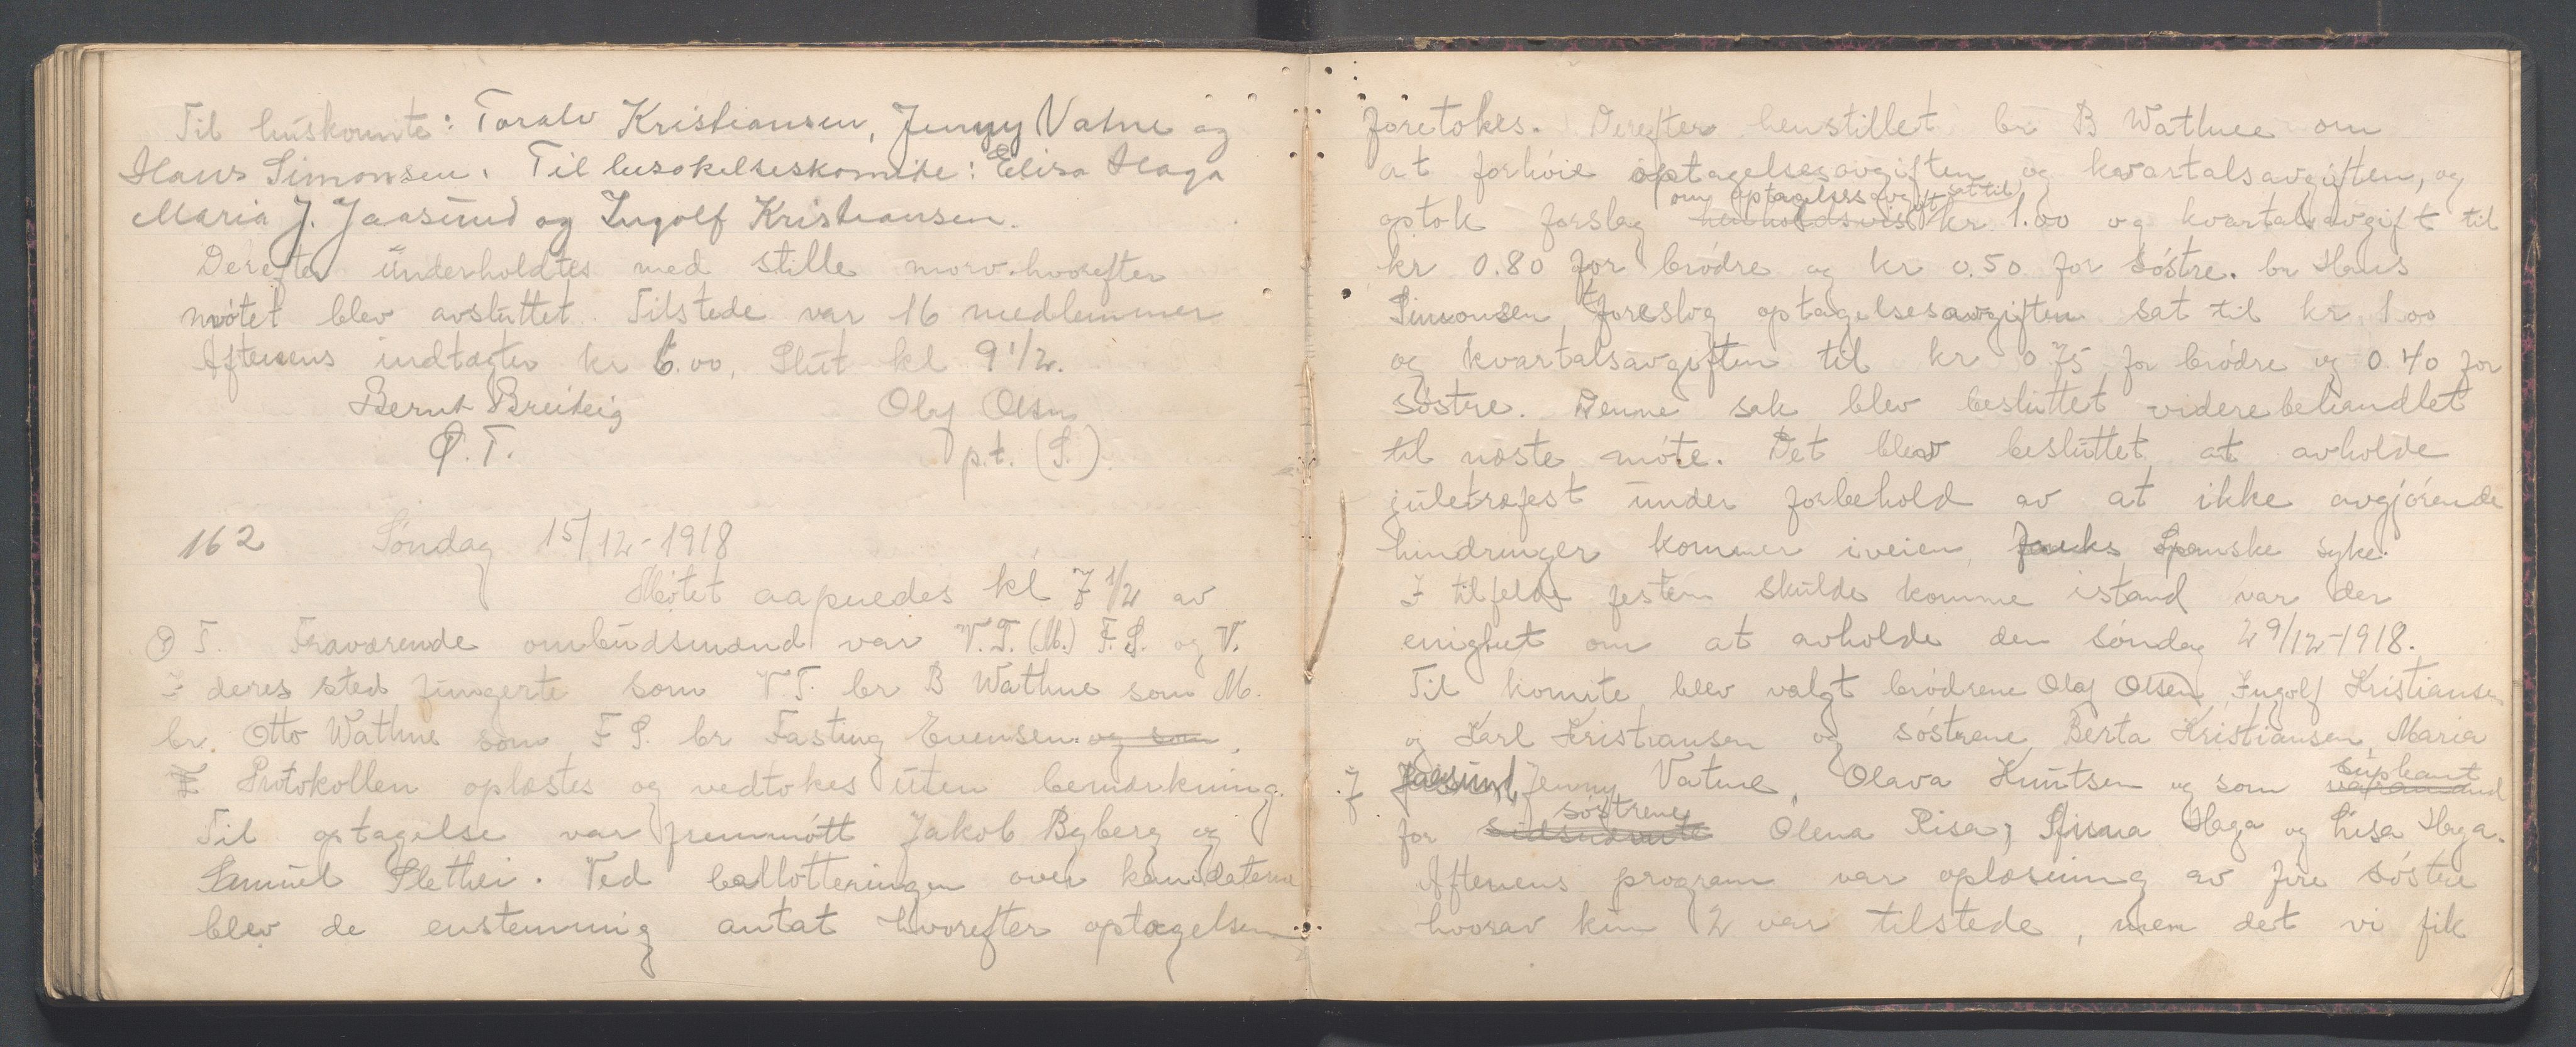 Til huskomite: Toralv Kristiansen, Jenny Vatne og
Hans Simonsen. Til besøkelseskomite: Elisa Haga
Maria J. Jaasund og Ingolf Kristiansen.
Derefter underholdtes med stille moro. hvorefter
møtet blev avsluttet. Tilstede var 16 medlemmer
Aftenens indtægter kr 6.00, Slut kl 9 1/2.
Bernt Breiteig Olaf Olsen
Ø.T. p.t. (S.).
162 Søndag 15/12-1918
Møtet aapnedes kl 7 1/2 av
Ø T. Fraværende ombudsmænd var V.T. (M.) F.S. og V.
I deres sted fungerte som V.T. br B Wathne som M.
br. Otto Wathne som F S. br Fasting Evensen og som
Protokollen oplæstes og vedtokes uten bemærkning.
Til optagelse var fremmøtt Jakob Byberg og
Samuel Slethei. Ved ballotteringen over kandidaterne
blev de enstemmig antat hvorefter optagelsen
foretokes. Derefter henstillet br B Wathne om
at forhøie optagelsesavgiften og kvartalsavgiften, og
om optagelsesavgift sat til
optok forslag henholdsvis kr 1.00 og kvartalsavgift til
kr 0.80 for brødre og kr 0.50 for søstre. br Hans
Simonsen foreslog optagelsesavgiften sat til kr 1.00
og kvartalsavgiften til kr 0.75 for brødre og 0.40 for
søstre. Denne sak blev besluttet videre behandlet
til næste møte. Det blev besluttet at avholde
juletræfest under forbehold av at ikke avgjørende
hindringer kommer iveien, Spanske syke.
I tilfelde festen skulde komme istand var der
enighet om at avholde den søndag 29/12-1918.
Til komite blev valgt brødrene Olaf Olsen, Ingolf Kristiansen
og Karl Kristiansen og søstrene Berta Kristiansen, Maria
supleant
J Jaasund, Jenny Vatne, Olava Knutsen og som varamand
søstrene
for Olena Risa, Haga og Lisa Haga.
Aftenens program var oplæsning av fire søstre
hvorav kun 2 var tilstede, men det vi fik